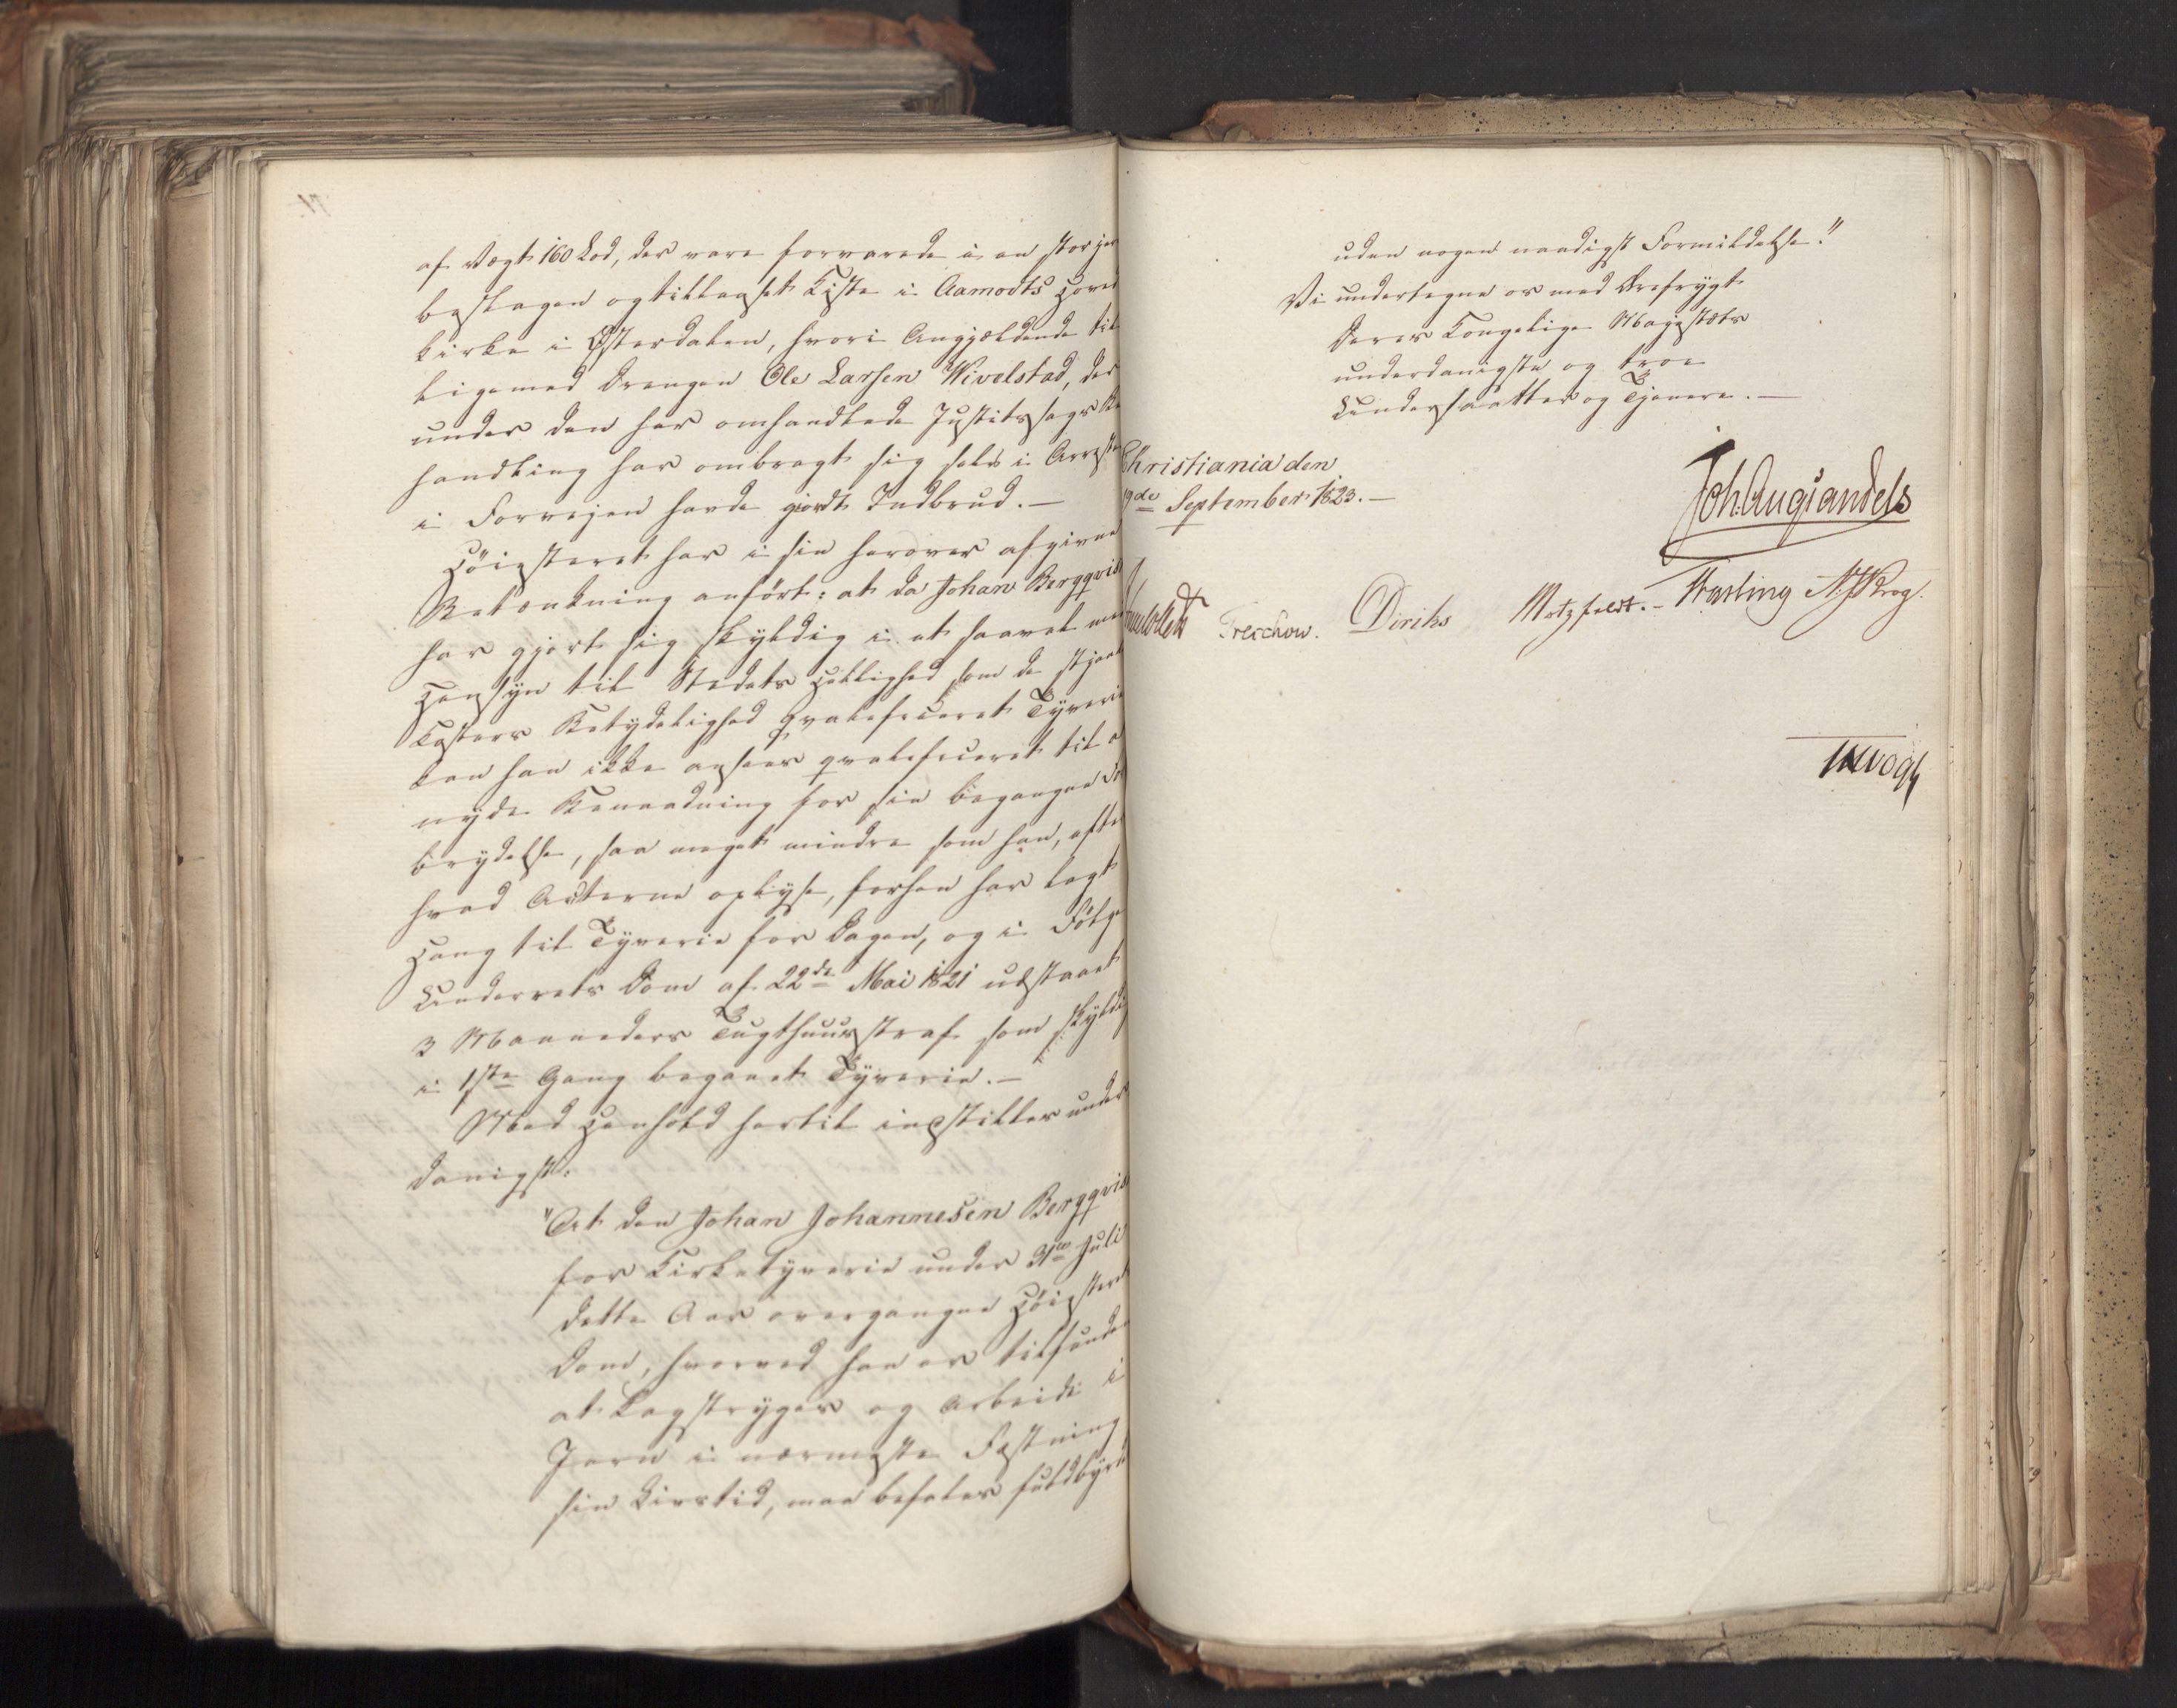 af Vægt 160 Lod, der vare forvarede i en stor jern
beslagen og tillaaset Kiste i Aamodts Hoved
kirke i Østerdalen, hvori Angjeldende til
ligemed Drengen Ole Larsen Wivelstad, der
under den her omhandlede Justitssags Be
handling har ombragt sig selv i Arresten
i Forveyen havde gjordt Indbrud. —
Höiesteret har i sin herover afgivne
Betænkning anført: at da Johan Bergqvist
har gjort sig skyldig i et saavel med
Hensyn til Stedets Hellighed som de stjaalne
Kosters Betydelighed qvalificeret Tyverie
kan han ikke ansees qvalificeret til at
nyde Benaadning for sin begangne For
brydelse, saa meget mindre som han, efter
hvad Acterne oplyse, forhen har lagt
Hang til Tyverie for Dagen, og i Følge
Underrets Dom af 22de Mai 1821 udstaaet
3 Maaneders Tugthuusstraf som skyldig
i 1ste Gang begaaet Tyverie. —
Med Henhold hertil indstilles under
danigst:
"At den Johan Johannesen Bergqvist
for Kirketyverie under 31te Juli
dette Aar overgangne Höiesterets
Dom, hvorved han er tilfunden
at Kagstryges og arbeide i
Jern i nærmeste Fæstning
sin Livstid, maa befales fuldbyrdet
uden nogen naadigst Formildelse."
Vi undertegne os med Ærefrygt
Deres Kongelige Majestæts
underdanigste og troe
Undersaatter og Tjenere. —
Christiania den
9de September 1823. —
Joh. Aug. Sandels
Treschow. Diriks Motzfeldt. – Fasting N. J. Krog.
Vogt